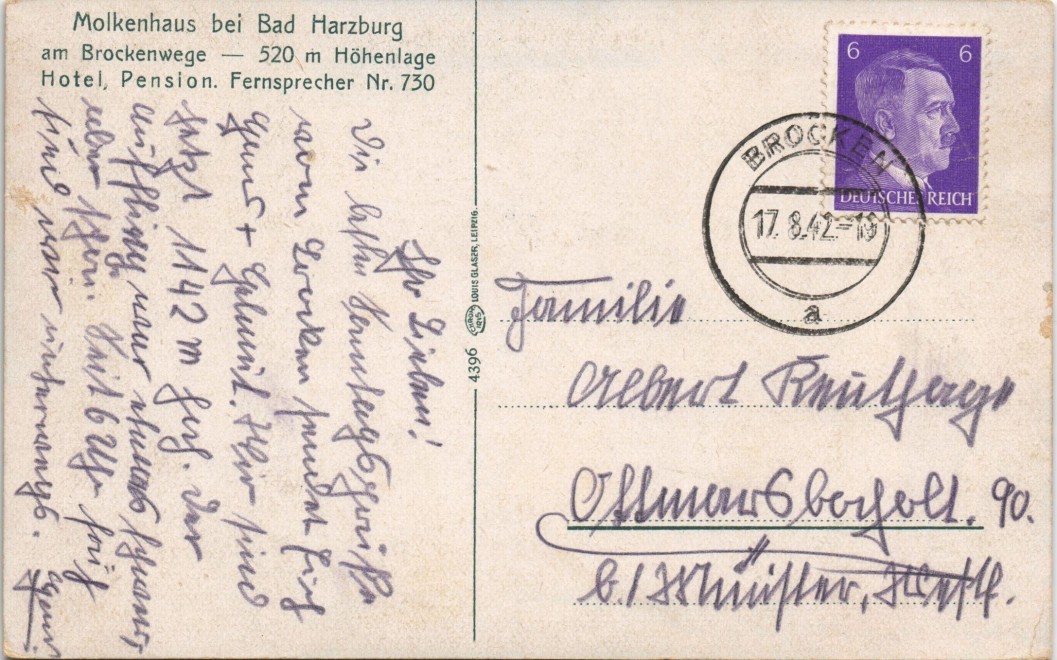 Molkenhaus bei Bad Harzburg
am Brockenwege — 520 m Höhenlage
Hotel, Pension. Fernsprecher Nr. 730
Ihr Lieben!
Die besten Sonntagsgrüße
vom Brocken sendet Euch
+ Helmut. Wir sind
jetzt 1142 m hoch. Der
Aufstieg war etwas schwer,
aber schön. Seit 6 Uhr früh
sind wir unterwegs.
4396
LOUIS GLASER, LEIPZIG.
6 6
DEUTSCHES REICH
BROCKEN
17.8.42.-18
a
Familie
Albert Reuthage
Ottmarsbocholt. 90.
b./Münster, Westf.